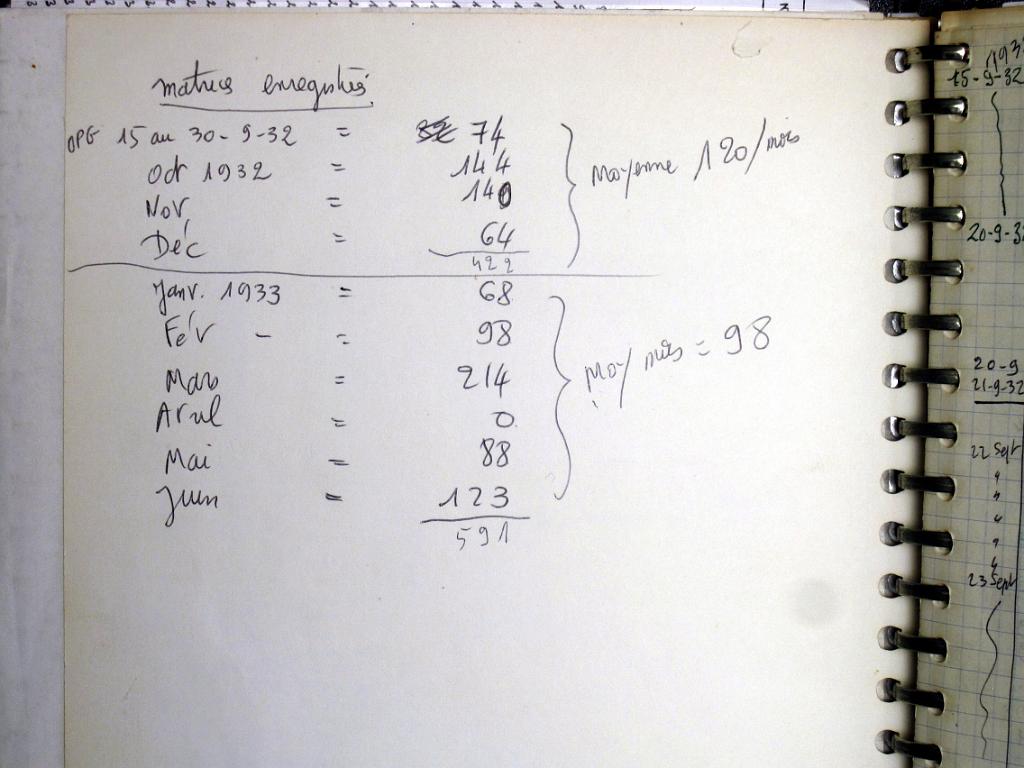 matrices enregistrés
OPG 15 au 30-9-32 = 74
Oct 1932 = 144
Nov. = 140
Déc = 64
422
Moyenne 120/mois
Janv. 1933 = 68
Fév - = 98
Mars = 214
Avril = 0
Mai = 88
Juin = 123
591
Moy/mois = 98
1932
15-9-32
20-9-32
20-9
21-9-32
22 Sept
23 Sept